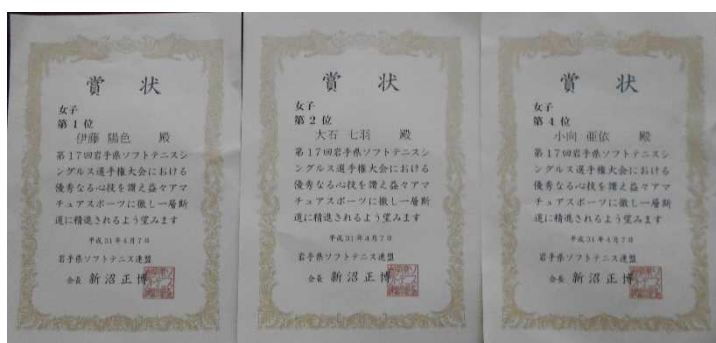 賞状
女子
第1位
伊藤 陽色 殿
第17回岩手県ソフトテニスシ
ングルス選手権大会における
優秀なる心技を讃え益々アマ
チュアスポーツに徹し一層斯
道に精進されるよう望みます
平成31年4月7日
岩手県ソフトテニス連盟
会長 新沼正博
賞状
女子
第2位
大石 七羽 殿
第17回岩手県ソフトテニスシ
ングルス選手権大会における
優秀なる心技を讃え益々アマ
チュアスポーツに徹し一層斯
道に精進されるよう望みます
平成31年4月7日
岩手県ソフトテニス連盟
会長 新沼正博
賞状
女子
第4位
小向 亜依 殿
第17回岩手県ソフトテニスシ
ングルス選手権大会における
優秀なる心技を讃え益々アマ
チュアスポーツに徹し一層斯
道に精進されるよう望みます
平成31年4月7日
岩手県ソフトテニス連盟
会長 新沼正博